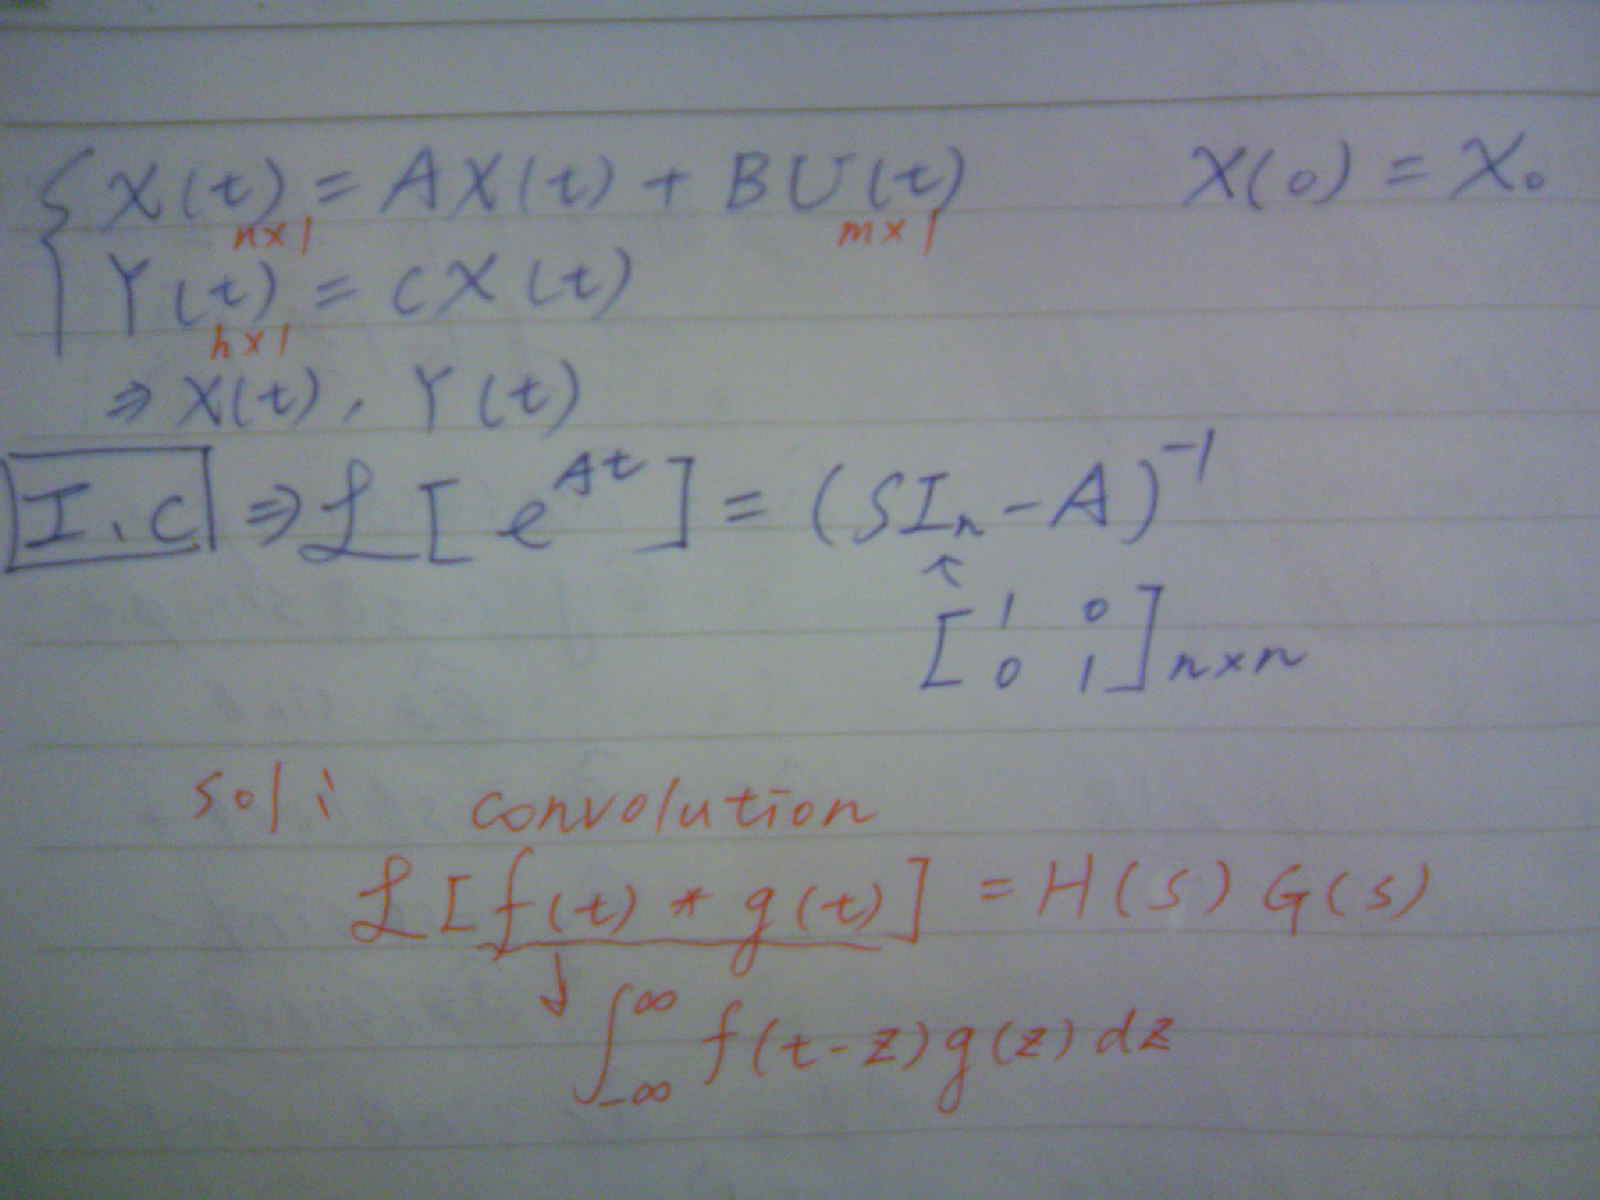 { X(t) = AX(t) + BU(t)    X(0) = X₀
n×1    m×1
Y(t) = CX(t)
h×1
⇒ X(t), Y(t)
I.C ⇒ ℒ[e^{At}] = (SIₙ - A)⁻¹
↑
[ 1 0
0 1 ] n×n
sol: convolution
ℒ[f(t) * g(t)] = H(s) G(s)
↓ ∫_{-∞}^{∞} f(t-z) g(z) dz